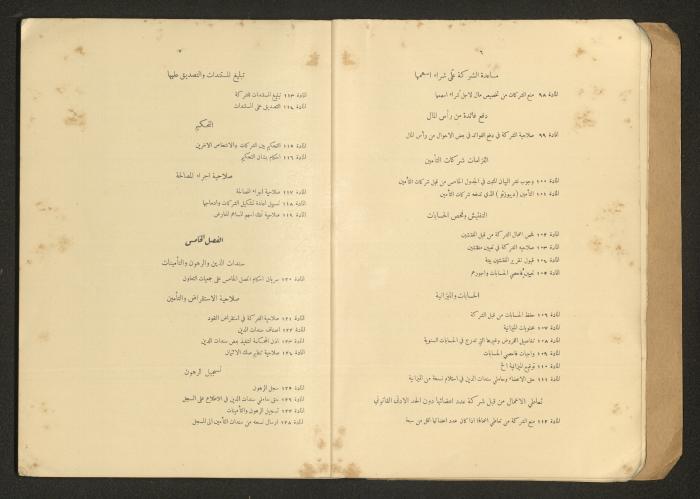 ٦
مساعدة الشركة على شراء اسهمها
المادة ٩٨ منع الشركات من تخصيص مال لاجل شراء اسهمها
دفع فائدة من رأس المال
المادة ٩٩ صلاحية الشركة في دفع الفوائد في بعض الاحوال من رأس المال
التزامات شركات التأمين
المادة ١٠٠ وجوب نشر البيان المثبت في الجدول الخامس من قبل شركات التأمين
المادة ١٠١ التأمين (ديبوزيتو) الذي تدفعه شركات التأمين
التفتيش وفحص الحسابات
المادة ١٠٢ فحص اعمال الشركة من قبل المفتشين
المادة ١٠٣ صلاحية الشركة في تعيين مفتشين
المادة ١٠٤ قبول تقرير المفتشين بينة
المادة ١٠٥ تعيين فاحصي الحسابات واجورهم
الحسابات والميزانية
المادة ١٠٦ حفظ الحسابات من قبل الشركة
المادة ١٠٧ محتويات الميزانية
المادة ١٠٨ تفاصيل القروض وغيرها التي تدرج في الحسابات السنوية
المادة ١٠٩ واجبات فاحصي الحسابات
المادة ١١٠ توقيع الميزانية الخ
المادة ١١١ حق الاعضاء وحاملي سندات الدين في استلام نسخة من الميزانية
تعاطي الاعمال من قبل شركة عدد اعضائها دون الحد الادنى القانوني
المادة ١١٢ منع الشركة من تعاطي اعمالها اذا كان عدد اعضائها اقل من سبعة
٧
تبليغ المستندات والتصديق عليها
المادة ١١٣ تبليغ المستندات للشركة
المادة ١١٤ التصديق على المستندات
التحكيم
المادة ١١٥ التحكيم بين الشركات والاشخاص الآخرين
المادة ١١٦ احكام بشأن التحكيم
صلاحية اجراء المصالحة
المادة ١١٧ صلاحية اجراء المصالحة
المادة ١١٨ تسهيل اعادة تشكيل الشركات وادماجها
المادة ١١٩ صلاحية تملك اسهم المساهم المعارض
الفصل الخامس
سندات الدين والرهون والتأمينات
المادة ١٢٠ سريان احكام الفصل الخامس على جمعيات التعاون
صلاحية الاستقراض والتأمين
المادة ١٢١ صلاحية الشركة في استقراض النقود
المادة ١٢٢ اصناف سندات الدين
المادة ١٢٣ اذن المحكمة لتنفيذ بعض سندات الدين
المادة ١٢٤ صلاحية تنظيم صك الائتمان
تسجيل الرهون
المادة ١٢٥ سجل الرهون
المادة ١٢٦ حق حاملي سندات الدين في الاطلاع على السجل
المادة ١٢٧ تسجيل الرهون والتأمينات
المادة ١٢٨ ارسال نسخة من سندات التأمين الى المسجل